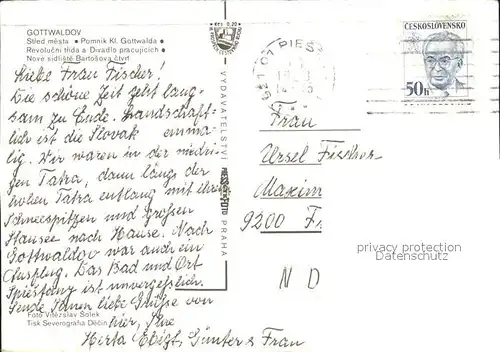 GOTTWALDOV
Střed města • Pomník Kl. Gottwalda •
Revoluční třída a Divadlo pracujících •
Nové sídliště Bartošova čtvrť
Liebe Frau Fischer!
Die schöne Zeit geht lang-
sam zu Ende. Landschaft-
lich ist die Slovak einma-
lig. Wir waren in der niedri-
gen Tatra, dann längs der
hohen Tatra entlang mit ihren
Schneespitzen und großen
Stausee nach Hause. Nach
Gottwaldov war auch ein
Ausflug. Das Bad und Ort
Piestany ist unvergeßlich.
Sende Ihnen liebe Grüße von
hier, Ihre
Herta Günter & Frau
Foto Vítězslav Solek
Tisk Severografia Děčín
Kčs 0,20
VYDAVATELSTVÍ PRESSFOTO PRAHA
921 01 PIEŠŤ
ČESKOSLOVENSKO
50h
Frau
Ursel Fischer
Maxim
9200 Fr
N D
privacy protection
Datenschutz